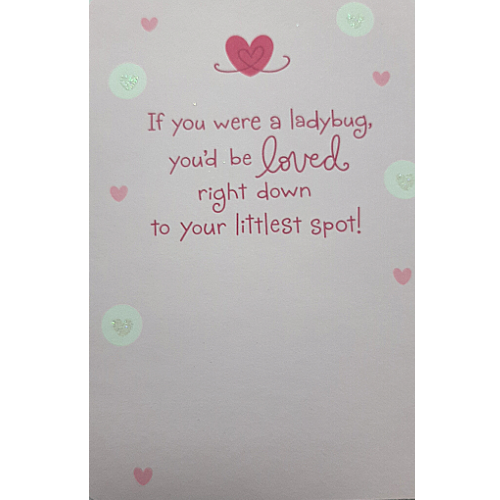 If you were a ladybug,
you'd be loved
right down
to your littlest spot!